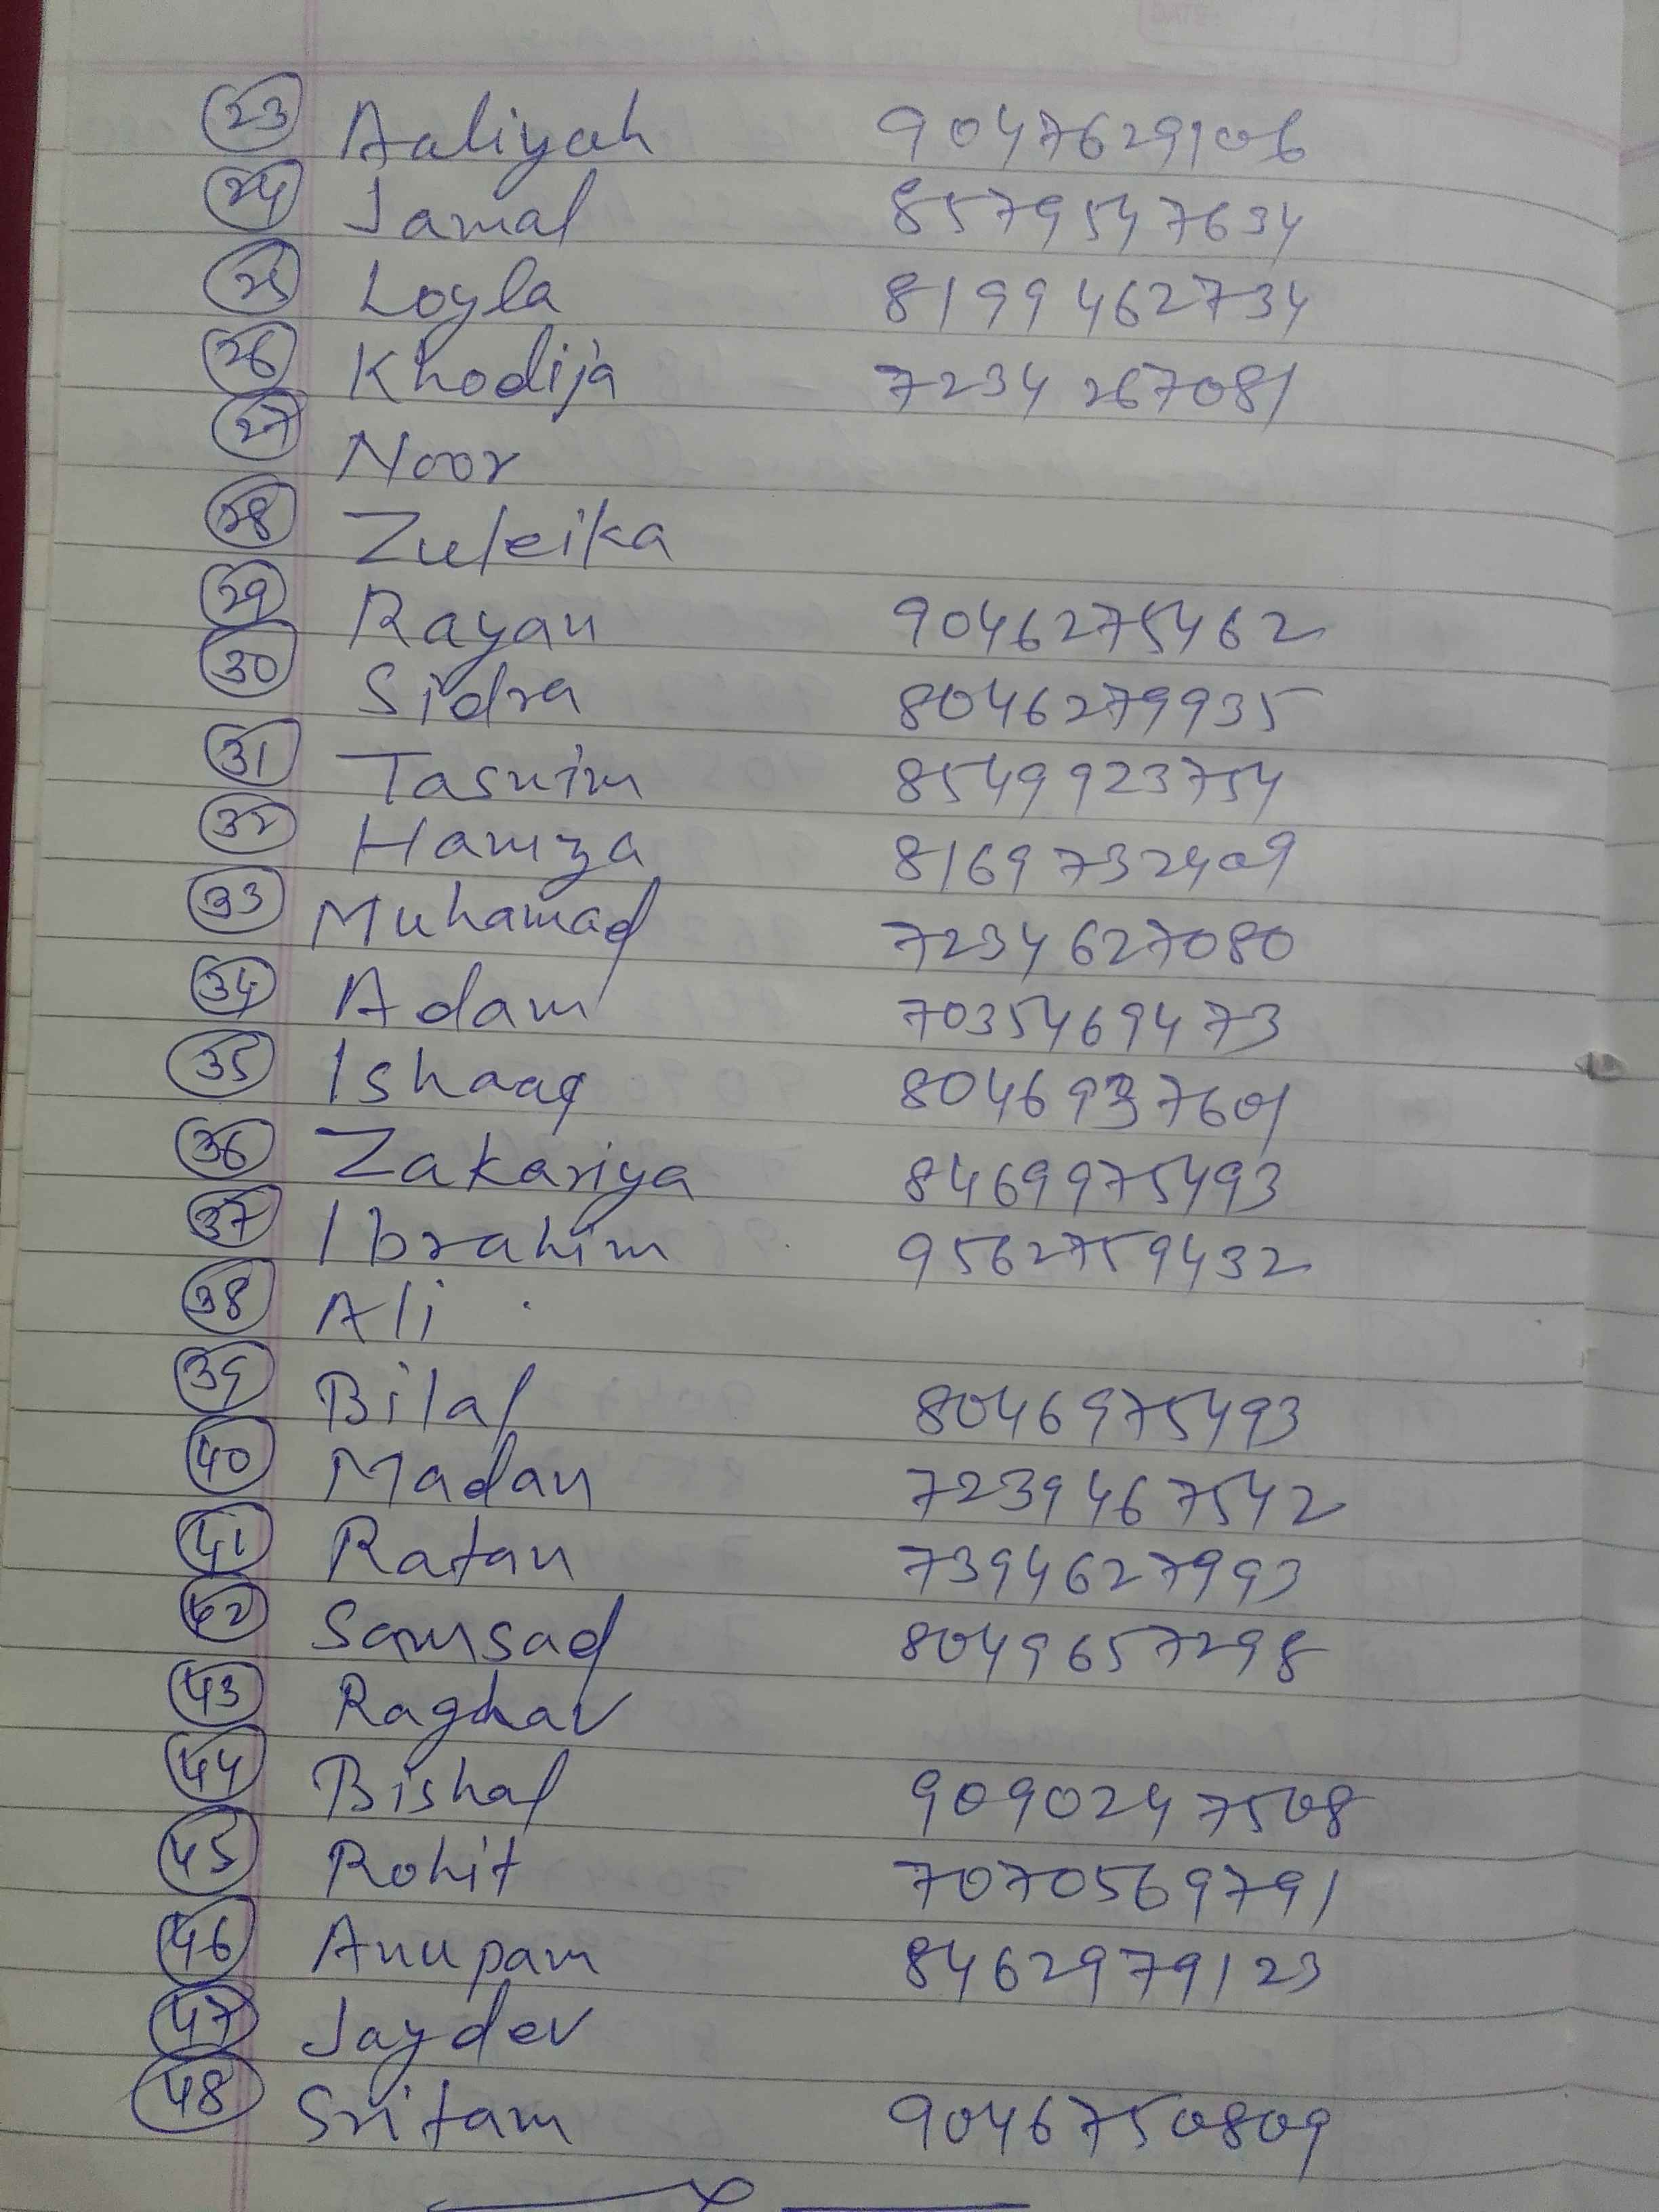 23 Aaliyah 9047629106
24 Jamal 8579547634
25 Loyla 8199462734
26 Khodija 7234267081
27 Noor
28 Zuleika
29 Rayan 9046275462
30 Sidra 8046279935
31 Tasnim 8549923754
32 Hamza 8169732409
33 Muhamad 7234627080
34 Adam 7035469473
35 Ishaaq 8046937601
36 Zakariya 8469975493
37 Ibrahim 9562759432
38 Ali
39 Bilal 8046975493
40 Madan 7239467542
41 Ratan 7394627993
42 Samsad 8049657298
43 Raghav
44 Bishal 9090247508
45 Rohit 7070569791
46 Anupam 8462979123
47 Jaydev
48 Sritam 9046750809